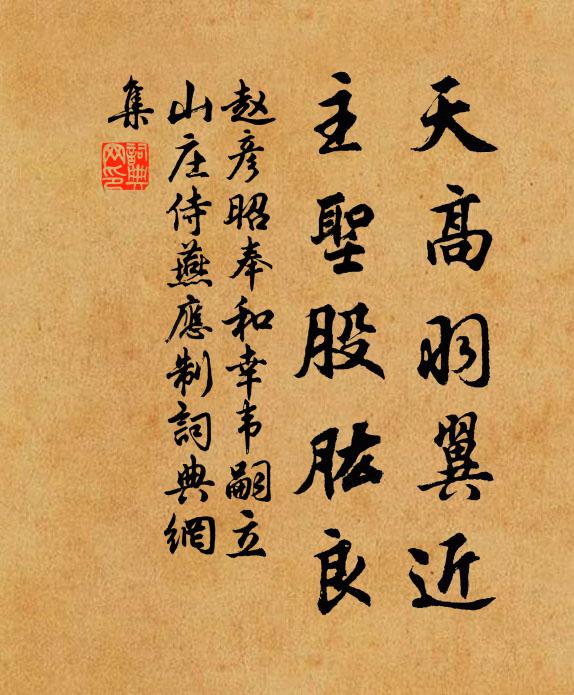 天高羽翼近
主聖股肱良
赵彦昭奉和幸韦嗣立
山庄侍燕應制詞典網
集
詞典网印